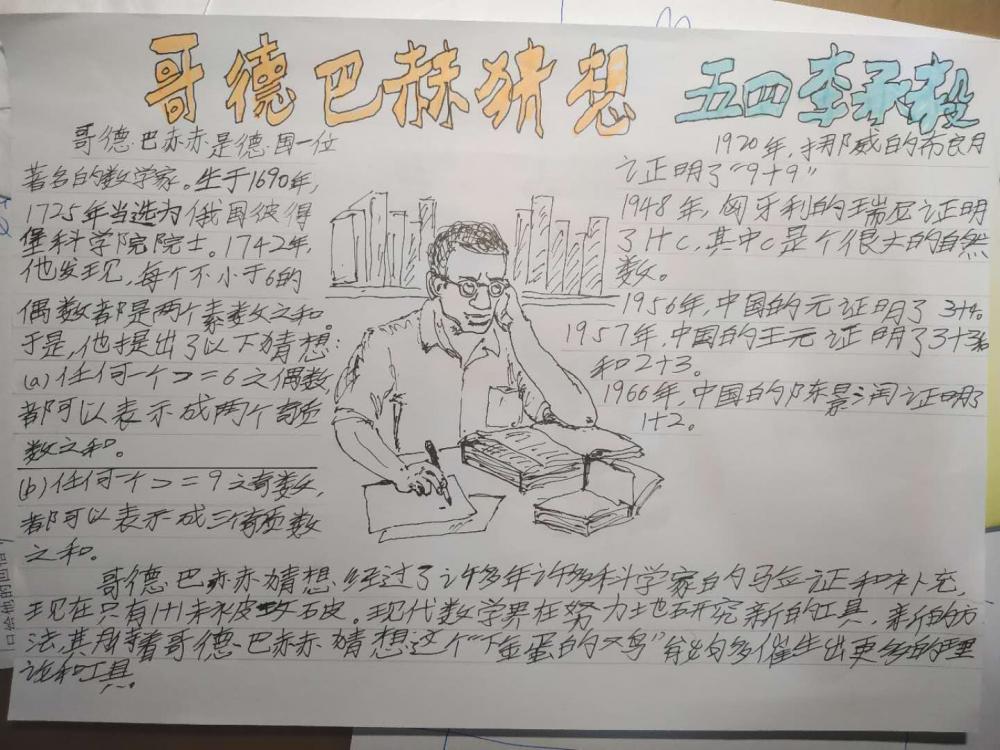 哥德巴赫猜想 五四李承毅
哥德巴赫是德国一位
著名的数学家。生于1690年,
1725年当选为俄国彼得
堡科学院院士。1742年,
他发现,每个不小于6的
偶数都是两个素数之和。
于是,他提出了以下猜想:
(a)任何一个>=6之偶数,
都可以表示成两个奇质
数之和。
(b)任何一个>=9之奇数,
都可以表示成三个奇质数
之和。
1920年,挪威的布良月
证明了“9+9”
1948年,匈牙利的瑞尼证明
了1+c,其中c是个很大的自然
数。
1956年,中国的王元证明了3+4。
1957年,中国的王元证明了3+3和
和2+3。
1966年,中国的陈景润证明了
1+2。
哥德巴赫猜想经过了许多年许多科学家的验证和补充,
现在只有1+1未被攻破。现代数学界在努力地研究新的工具,新的方
法,期待着哥德巴赫猜想这个“下金蛋的鸡”能够多催生出更多的理
论和工具